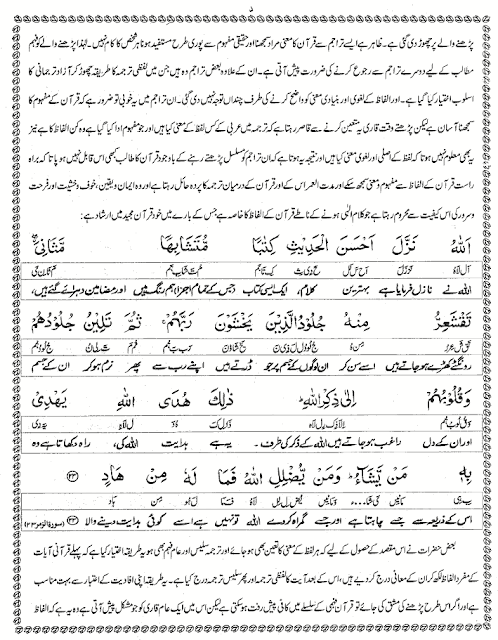 پڑھنے والے پر چھوڑ دی گئی ہے۔ ظاہر ہے ایسے تراجم سے قرآن کا معنی مراد سمجھنا اور حقیقی مفہوم سے پوری طرح مستفید ہونا ہر شخص کا کام نہیں۔ لہٰذا پڑھنے والے کو فہم
مطالب کے لیے دوسرے تراجم سے رجوع کرنے کی ضرورت پیش آتی ہے۔ ان کے علاوہ بعض تراجم وہ ہیں جن میں لفظی ترجمہ کا طریقہ چھوڑ کر آزاد ترجمانی کا
اسلوب اختیار کیا گیا ہے۔ اور الفاظ کے لغوی اور بنیادی معنی کو واضح کرنے کی طرف چنداں توجہ نہیں دی گئی۔ ان تراجم میں یہ خوبی تو ضرور ہے کہ قرآن کے مفہوم کا
سمجھنا آسان ہے لیکن پڑھتے وقت قاری یہ متعین کرنے سے قاصر رہتا ہے کہ ترجمہ میں عربی کے کس لفظ کے معنی کیا ہیں اور جو مفہوم ادا کیا گیا ہے وہ کن الفاظ کا ہے نیز
یہ بھی معلوم نہیں ہوتا کہ لفظ کے اصلی اور لغوی معنی کیا ہیں اور نتیجہ یہ ہوتا ہے کہ ان تراجم کو مسلسل پڑھتے رہنے کے باوجود قرآن کا طالب کبھی اس قابل نہیں ہو پاتا کہ براہ
راست قرآن کے الفاظ سے مفہوم و معنی سمجھ سکے اور مدت العمر اس کے اور قرآن کے درمیان ترجمہ کا پردہ حائل رہتا ہے اور وہ ایمان و یقین، خوف و خشیت اور فرحت
و سرور کی اس کیفیت سے محروم رہتا ہے جو کلام الٰہی ہونے کے ناطے قرآن کے الفاظ کا خاصہ ہے جس کے بارے میں خود قرآن مجید میں ارشاد ہے:
اَللّٰهُ نَزَّلَ اَحْسَنَ الْحَدِیْثِ كِتٰبًا مُّتَشَابِهًا مَّثَانِیَ
اللہ نے نازل فرمایا ہے بہترین کلام، ایک ایسی کتاب جس کے تمام اجزا ہم رنگ ہیں اور مضامین دہرائے گئے ہیں،
تَقْشَعِرُّ مِنْهُ جُلُوْدُ الَّذِیْنَ یَخْشَوْنَ رَبَّهُمْ ۚ ثُمَّ تَلِیْنُ جُلُوْدُهُمْ
رونگٹے کھڑے ہو جاتے ہیں اسے سن کر ان لوگوں کے جسم پر جو ڈرتے ہیں اپنے رب سے پھر نرم ہو کر ان کے جسم
وَ قُلُوْبُهُمْ اِلٰی ذِكْرِ اللّٰهِ ؕ ذٰلِكَ هُدَی اللّٰهِ یَهْدِیْ
اور ان کے دل راغب ہو جاتے ہیں اللہ کے ذکر کی طرف۔ یہ ہے ہدایت اللہ کی، راہ دکھاتا ہے وہ
بِهٖ مَنْ یَّشَآءُ ؕ وَ مَنْ یُّضْلِلِ اللّٰهُ فَمَا لَهٗ مِنْ هَادٍ ﴿۲۳﴾
اس کے ذریعہ سے جسے چاہتا ہے اور جسے گمراہ کر دے اللہ تو نہیں ہے اسے کوئی ہدایت دینے والا ﴿۲۳﴾ (سورۃ الزمر ۲۳)
بعض حضرات نے اس مقصد کے حصول کے لیے کہ ہر لفظ کے معنی کا تعین بھی ہو جائے اور ترجمہ سلیس اور عام فہم بھی ہو یہ طریقہ اختیار کیا ہے کہ پہلے قرآنی آیات
کے مفرد الفاظ لکھ کر ان کے معانی درج کر دیے ہیں، اس کے بعد آیت کا لفظی ترجمہ اور پھر سلیس ترجمہ درج کیا ہے۔ یہ طریقہ اپنی افادیت کے اعتبار سے بہت مناسب
ہے اور اگر اس طرح پڑھنے کی مشق کی جائے تو قرآن فہمی کے سلسلے میں کافی پیش رفت ہو سکتی ہے لیکن اس میں ایک عام قاری کو جو مشکل پیش آتی ہے وہ یہ ہے کہ الفاظ